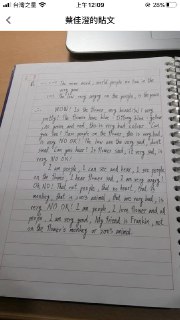 台灣之星
上午12:09
28%
蔡佳澄的貼文
very good.
and the tree very angry on the people, is the people
WOW! Is the flower, very beautiful very
pretty! The flower have blue
can green and red, this is very bad colour. Can
you see? Can people on the flower, this is very bad,
is very NO OK! The tree are the very sad, don't
cool! Can you hear? Is flower said, is very sad, is
very NO OK!
I am people, I can see and hear, I see people
on the flower, I hear flower sad, I am very angry.
Oh NO! That not people, that no heart, that is
monkey, that is zoo's animal, that are very bad, is
very NO OK! I am people, I love flower and all
people, I am very good. My friend is Franklin, not
on the flower's monkey or zoo's animal.